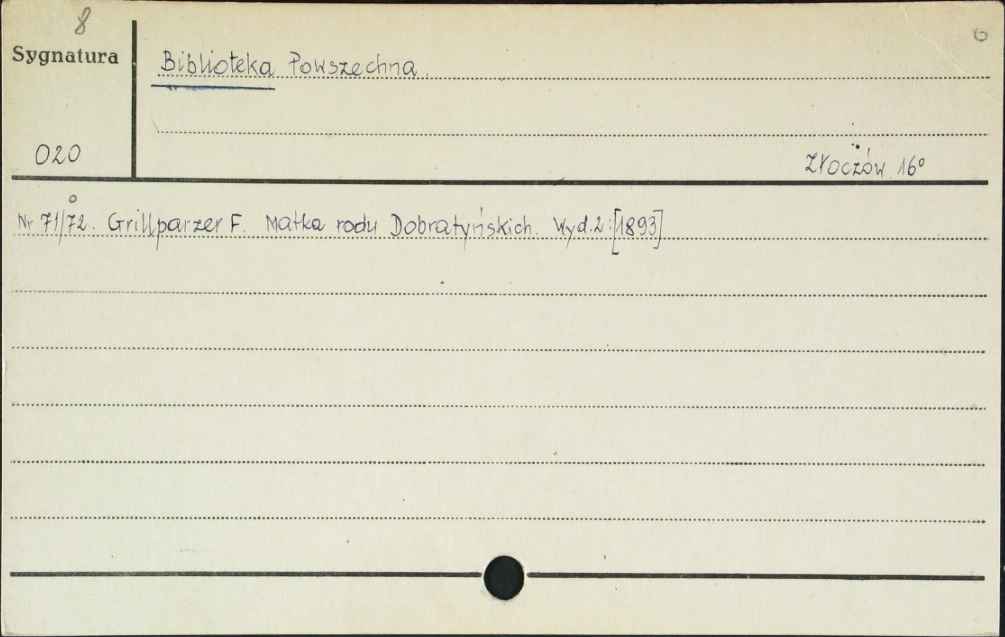 8
6
Sygnatura
Biblioteka Powszechna.
020
Złoczów 16°
Nr 71/72. Grillparzer F. Matka rodu Dobratyńskich. Wyd. 2: [1893]